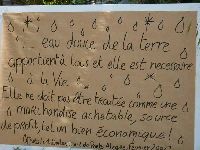 eau douce de la terre
appartient à tous et elle est necessaire
à la Vie.
Elle ne doit pas être traitée comme une
marchandise achetable, source
de profit, ( et un bien économique !
Porto Alegre, février 2002